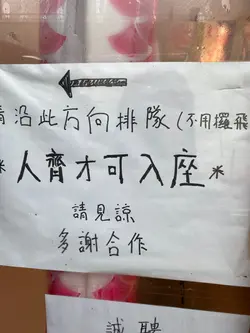 請沿此方向排隊(不用攞飛
*人齊才可入座*
請見諒
多謝合作
誠聘